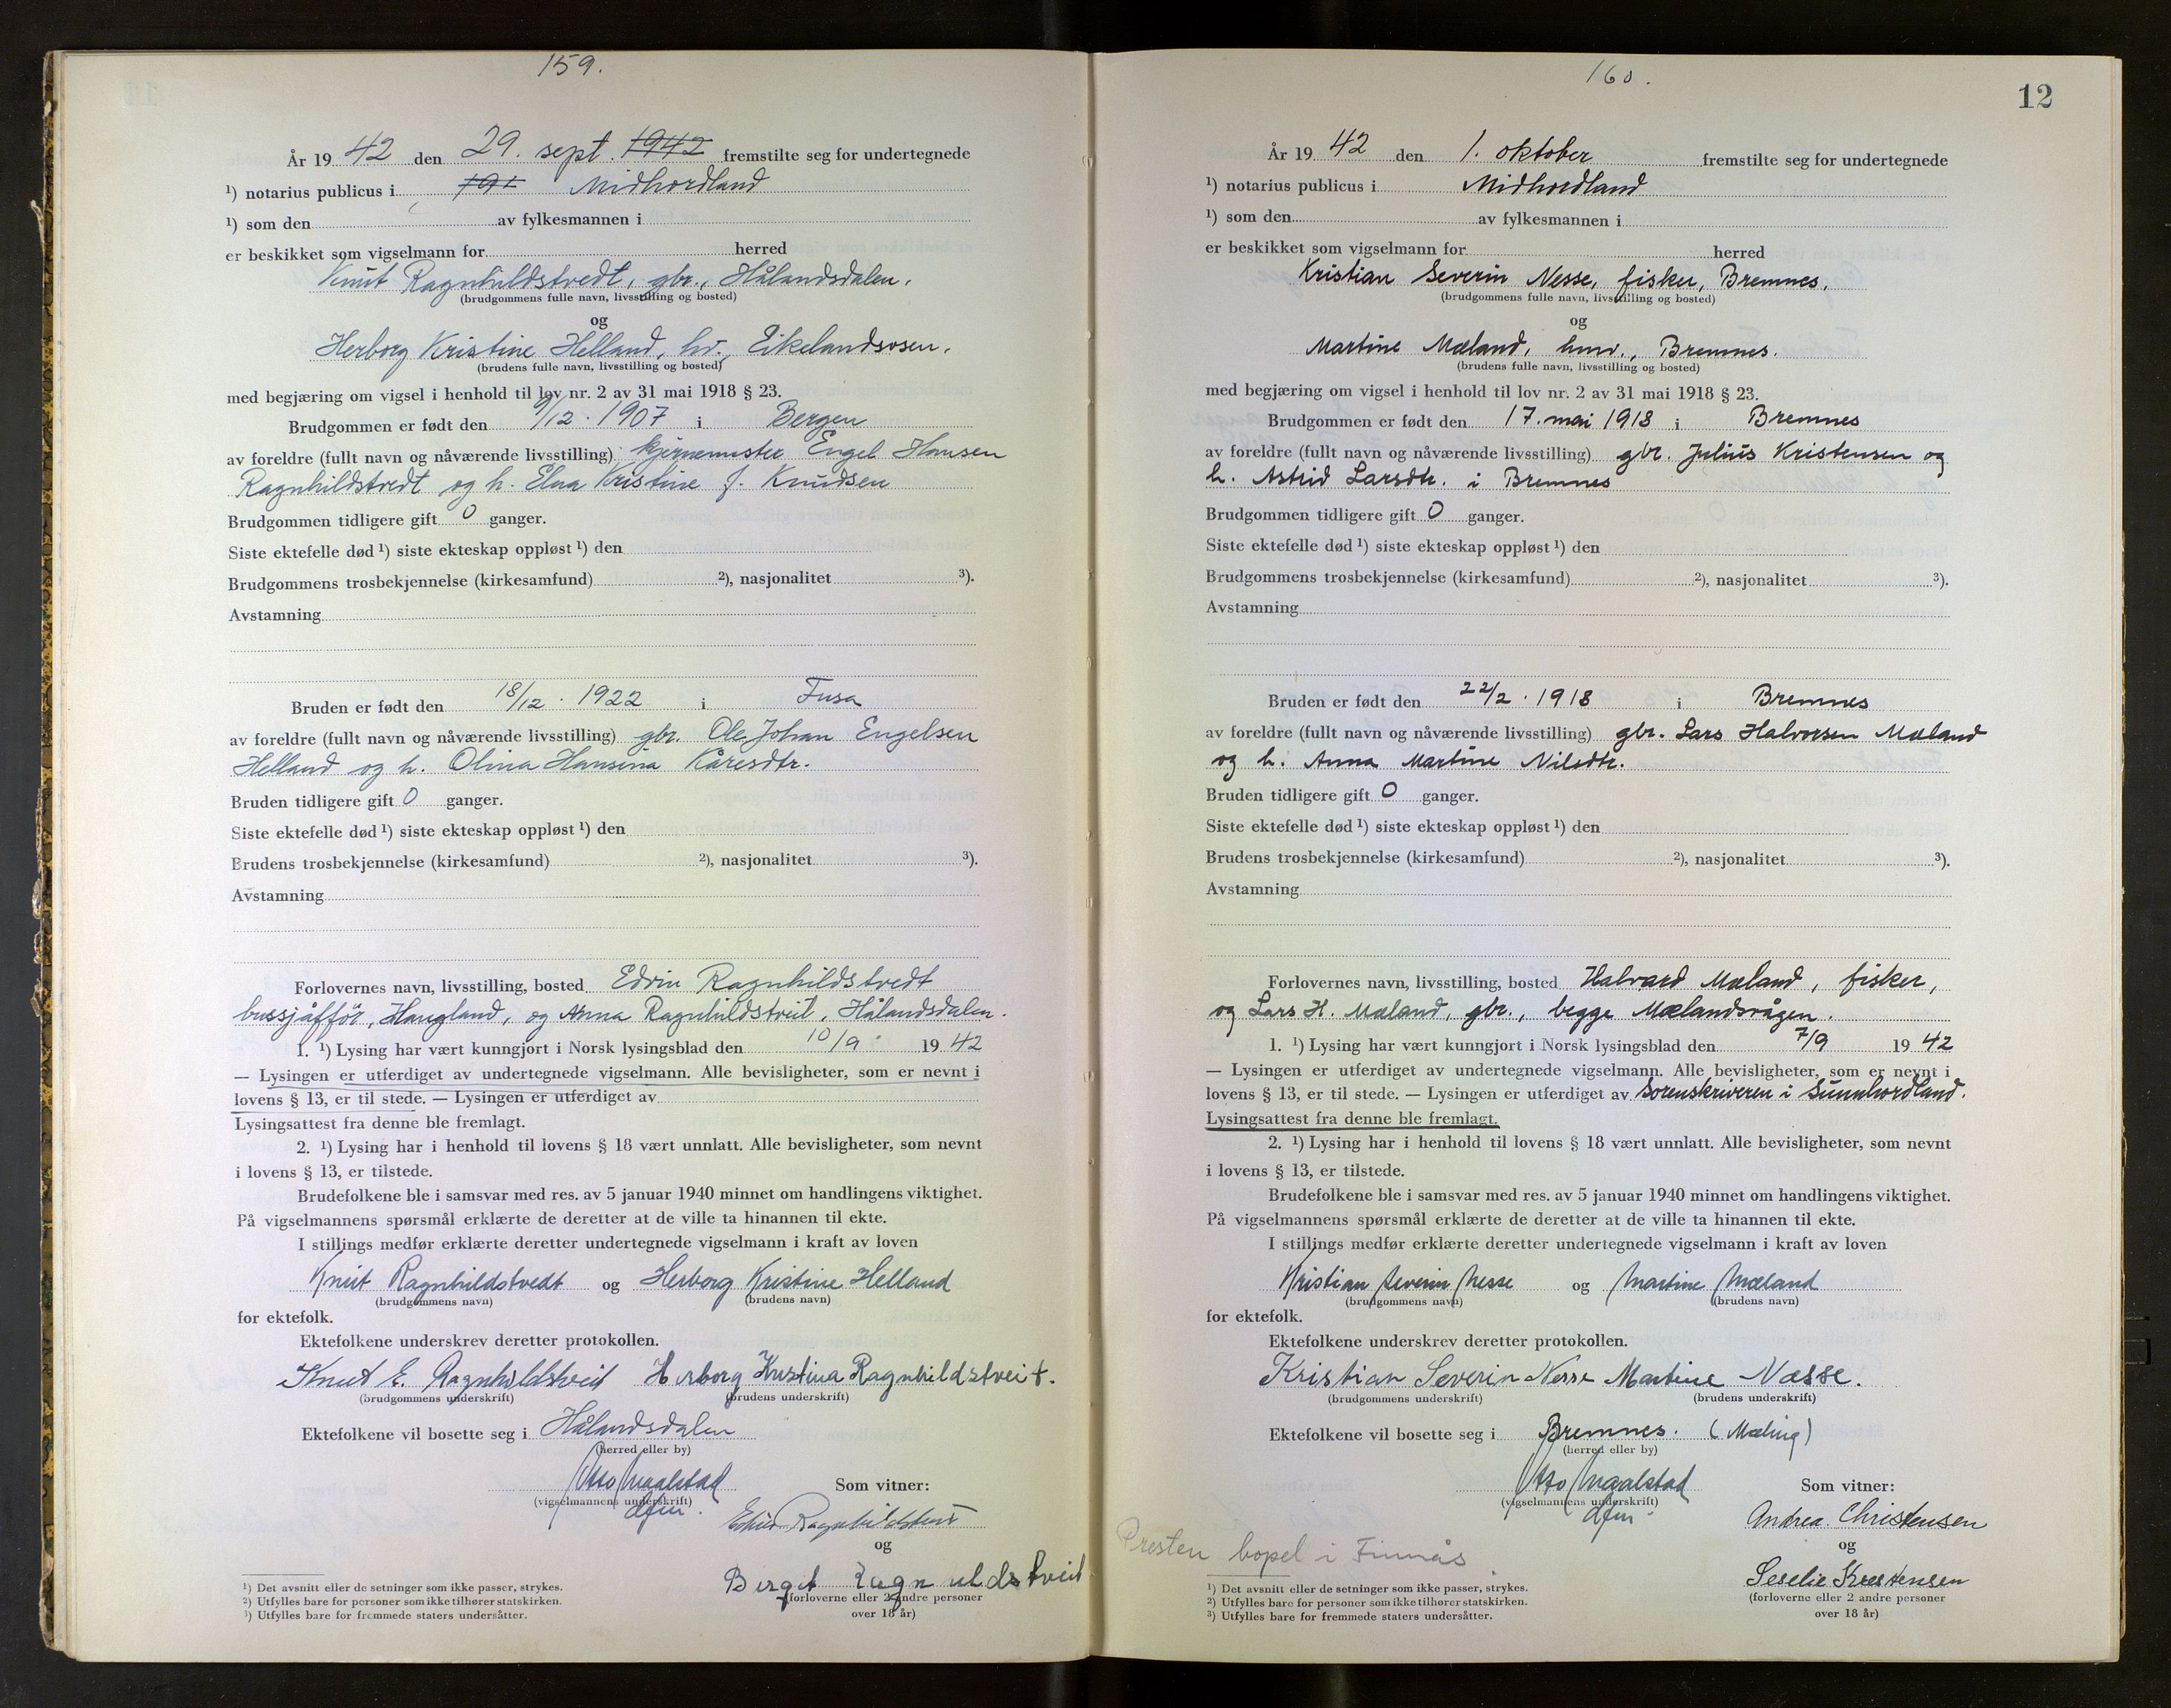 159.
År 19 42 den 29. sept. 1942 fremstilte seg for undertegnede
¹) notarius publicus i 191 Midhordland
¹) som den av fylkesmannen i
er beskikket som vigselmann for herred
Knut Ragnhildstvedt, gbr., Hålandsdalen.
(brudgommens fulle navn, livsstilling og bosted)
og
Herborg Kristine Helland, hv., Eikelandsosen.
(brudens fulle navn, livsstilling og bosted)
med begjæring om vigsel i henhold til lov nr. 2 av 31 mai 1918 § 23.
Brudgommen er født den 9/12. 1907 i Bergen
av foreldre (fullt navn og nåværende livsstilling) Engel Hansen
Ragnhildstvedt og h. Elna Kristine f. Knudsen
Brudgommen tidligere gift 0 ganger.
Siste ektefelle død ¹) siste ekteskap oppløst ¹) den
Brudgommens trosbekjennelse (kirkesamfund) ²), nasjonalitet ³).
Avstamning
Bruden er født den 18/12. 1922 i Fusa
av foreldre (fullt navn og nåværende livsstilling) gbr. Ole Johan Engelsen
Helland og h. Olina Hansina Kåresdtr.
Bruden tidligere gift 0 ganger.
Siste ektefelle død ¹) siste ekteskap oppløst ¹) den
Brudens trosbekjennelse (kirkesamfund) ²), nasjonalitet ³).
Avstamning
Forlovernes navn, livsstilling, bosted Edvin Ragnhildstvedt
bussjåffør, Haugland, og Anna Ragnhildstveit, Hålandsdalen.
1. ¹) Lysing har vært kunngjort i Norsk lysingsblad den 10/9 19 42
— Lysingen er utferdiget av undertegnede vigselmann. Alle bevisligheter, som er nevnt i
lovens § 13, er til stede. — Lysingen er utferdiget av
Lysingsattest fra denne ble fremlagt.
2. ¹) Lysing har i henhold til lovens § 18 vært unnlatt. Alle bevisligheter, som nevnt
i lovens § 13, er tilstede.
Brudefolkene ble i samsvar med res. av 5 januar 1940 minnet om handlingens viktighet.
På vigselmannens spørsmål erklærte de deretter at de ville ta hinannen til ekte.
I stillings medfør erklærte deretter undertegnede vigselmann i kraft av loven
Knut Ragnhildstvedt og Herborg Kristine Helland
(brudgommens navn) (brudens navn)
for ektefolk.
Ektefolkene underskrev deretter protokollen.
Knut E. Ragnhildstveit Herborg Kristina Ragnhildstveit.
(brudgommens underskrift) (brudens underskrift)
Ektefolkene vil bosette seg i Hålandsdalen
(herred eller by)
Otto Maalstad
(vigselmannens underskrift)
dfm.
Som vitner:
Edvin Ragnhildstveit
og
Birgit Ragnhildstveit
(forloverne eller 2 andre personer
over 18 år)
¹) Det avsnitt eller de setninger som ikke passer, strykes.
²) Utfylles bare for personer som ikke tilhører statskirken.
³) Utfylles bare for fremmede staters undersåtter.
160.
12
År 19 42 den 1. oktober fremstilte seg for undertegnede
¹) notarius publicus i Midhordland
¹) som den av fylkesmannen i
er beskikket som vigselmann for herred
Kristian Severin Nesse, fisker, Bremnes.
(brudgommens fulle navn, livsstilling og bosted)
og
Martine Mæland, hmv., Bremnes.
(brudens fulle navn, livsstilling og bosted)
med begjæring om vigsel i henhold til lov nr. 2 av 31 mai 1918 § 23.
Brudgommen er født den 17. mai 1918 i Bremnes
av foreldre (fullt navn og nåværende livsstilling) gbr. Julius Kristensen og
h. Astrid Larsdtr. i Bremnes
Brudgommen tidligere gift 0 ganger.
Siste ektefelle død ¹) siste ekteskap oppløst ¹) den
Brudgommens trosbekjennelse (kirkesamfund) ²), nasjonalitet ³).
Avstamning
Bruden er født den 22/2. 1918 i Bremnes
av foreldre (fullt navn og nåværende livsstilling) gbr. Lars Halvorsen Mæland
og h. Anna Martine Nilsdtr.
Bruden tidligere gift 0 ganger.
Siste ektefelle død ¹) siste ekteskap oppløst ¹) den
Brudens trosbekjennelse (kirkesamfund) ²), nasjonalitet ³).
Avstamning
Forlovernes navn, livsstilling, bosted Halvard Mæland, fisker,
og Lars H. Mæland, gbr., begge Mælandsvågen.
1. ¹) Lysing har vært kunngjort i Norsk lysingsblad den 7/9 19 42
— Lysingen er utferdiget av undertegnede vigselmann. Alle bevisligheter, som er nevnt i
lovens § 13, er til stede. — Lysingen er utferdiget av Sorenskriveren i Sunnhordland.
Lysingsattest fra denne ble fremlagt.
2. ¹) Lysing har i henhold til lovens § 18 vært unnlatt. Alle bevisligheter, som nevnt
i lovens § 13, er tilstede.
Brudefolkene ble i samsvar med res. av 5 januar 1940 minnet om handlingens viktighet.
På vigselmannens spørsmål erklærte de deretter at de ville ta hinannen til ekte.
I stillings medfør erklærte deretter undertegnede vigselmann i kraft av loven
Kristian Severin Nesse og Martine Mæland
(brudgommens navn) (brudens navn)
for ektefolk.
Ektefolkene underskrev deretter protokollen.
Kristian Severin Nesse Martine Næsse.
(brudgommens underskrift) (brudens underskrift)
Ektefolkene vil bosette seg i Bremnes. (Mæling)
(herred eller by)
Otto Maalstad
(vigselmannens underskrift)
dfm.
Som vitner:
Andrea Christensen
og
Seselie Krestensen
(forloverne eller 2 andre personer
over 18 år)
Presten bopel i Finnås
¹) Det avsnitt eller de setninger som ikke passer, strykes.
²) Utfylles bare for personer som ikke tilhører statskirken.
³) Utfylles bare for fremmede staters undersåtter.